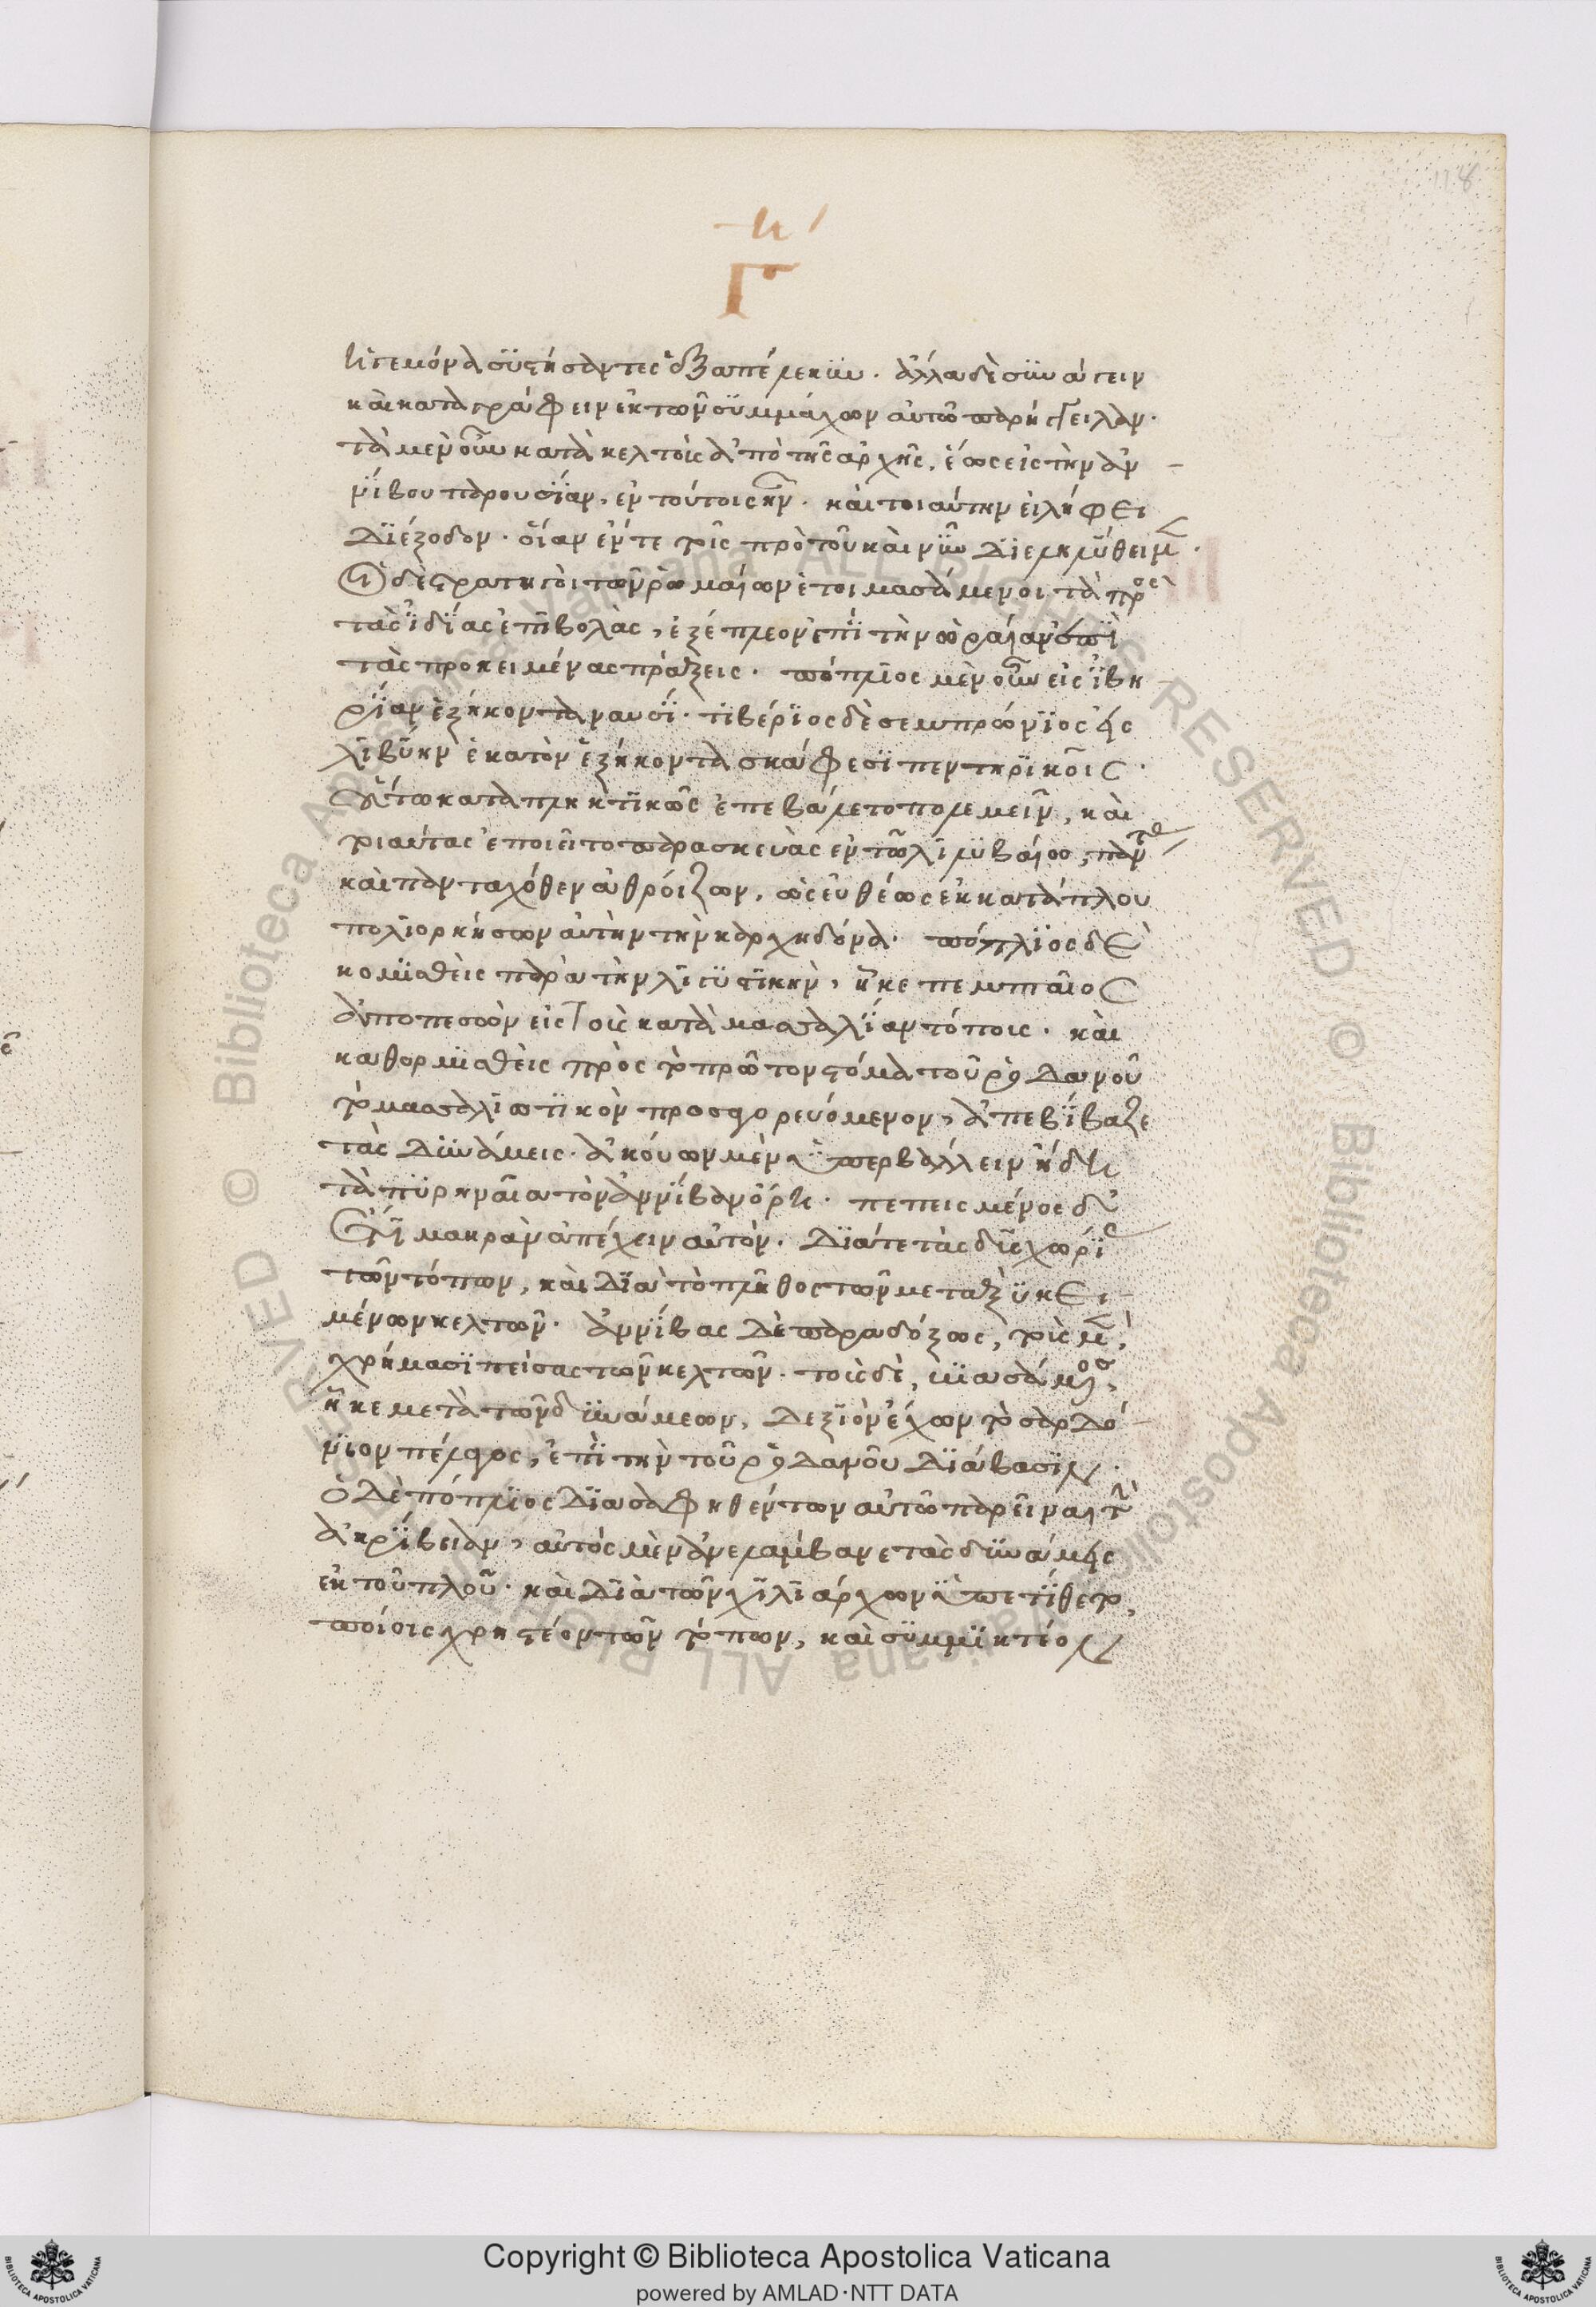 118
η
Γ
ἡγεμόνα συστήσαντες ἐξαπέστελλον. ἄλλα δὲ συνάγειν
καὶ καταγράφειν ἐκ τῶν συμμάχων αὐτῶ παρήγγειλαν.
τὰ μὲν οὖν κατὰ κελτοὺς ἀπὸ τῆς ἀρχῆς, ἕως εἰς τὴν ἀν
νίβου παρουσίαν, ἐν τούτοις ἦν. καὶ τοιαύτην εἰλήφει
διέξοδον. οἵαν ἔν τε τοῖς πρὸ τοῦ καὶ νῦν διεληλύθειμεν.
Οἱ δὲ στρατηγοὶ τῶν ῥωμαίων ἑτοιμασάμενοι τὰ πρὸς
τὰς ἰδίας ἐπιβολὰς, ἐξέπλεον ἐπὶ τὴν ὡραίαν ἐπὶ
τὰς προκειμένας πράξεις. πόπλιος μὲν οὖν εἰς ἰβη
ρίαν ἑξήκοντα ναυσί. τιβέριος δὲ σεμπρώνιος εἰς
λιβύην ἑκατὸν ἑξήκοντα σκάφεσι πεντηρικοῖς.
οὕτω καταπληκτικῶς ἐπεβάλετο πολεμεῖν, καὶ
τοιαύτας ἐποιεῖτο παρασκευὰς ἐν τῶ λιλυβαίω, πάντας
καὶ πανταχόθεν ἀθροίζων, ὡς εὐθέως ἐκ κατάπλου
πολιορκήσων αὐτὴν τὴν καρχηδόνα. πόπλιος δὲ
κομισθεὶς παρὰ τὴν λιγυστικὴν, ἧκε πεμπταῖος
ἀπὸ πεσσῶν εἰς τοὺς κατὰ μασσαλίαν τόπους. καὶ
καθορμισθεὶς πρὸς τὸ πρῶτον στόμα τοῦ ῥοδανοῦ
τὸ μασσαλιωτικὸν προσαγορευόμενον, ἀπεβίβαζε
τὰς δυνάμεις. ἀκούων μὲν ὑπερβάλλειν ἤδη
τὰ πυρηναῖα τὸν ἀννίβαν ὄρη. πεπεισμένος δ'
ἔτι μακρὰν ἀπέχειν αὐτὸν. διά τε τὰς δυσχωρίας
τῶν τόπων, καὶ διὰ τὸ πλῆθος τῶν μεταξὺ κει
μένων κελτῶν. ἀννίβας δὲ παραδόξως, τοὺς μὲν,
χρήμασι πείσας τῶν κελτῶν. τοὺς δὲ, βιασάμενος,
ἧκε μετὰ τῶν δυνάμεων, δεξιὸν ἔχων τὸ σαρδό
νιον πέλαγος, ἐπὶ τὴν τοῦ ῥοδανοῦ διάβασιν.
ὁ δὲ πόπλιος διασαφηθέντων αὐτῶ παρεῖναι τὴν
ἀκρίβειαν, αὐτὸς μὲν ἀνελάμβανε τὰς δυνάμεις
ἐκ τοῦ πλοῦ. καὶ διὰ τῶν χιλιάρχων ὑπετίθετο,
ποίοις χρηστέον τῶν τόπων, καὶ συμμικτέον
Copyright © Biblioteca Apostolica Vaticana
powered by AMLAD·NTT DATA